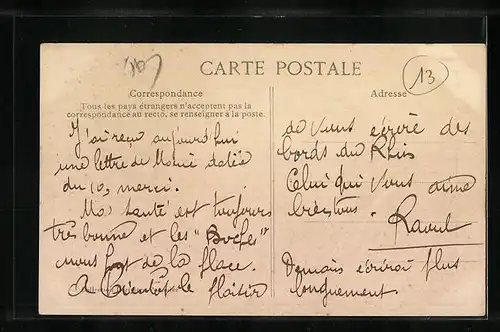 CARTE POSTALE
13
Correspondance
Adresse
Tous les pays étrangers n'acceptent pas la
correspondance au recto, se renseigner à la poste.
J'ai reçu aujourd'hui
une lettre de datée
du 10, merci.
Ma santé est toujours
très bonne et les "Boches"
nous font de la place.
A bientôt le plaisir
de vous écrire des
bords du Rhin
Celui qui vous aime
bien tous.
Raoul
Demain écrirai plus
longuement.